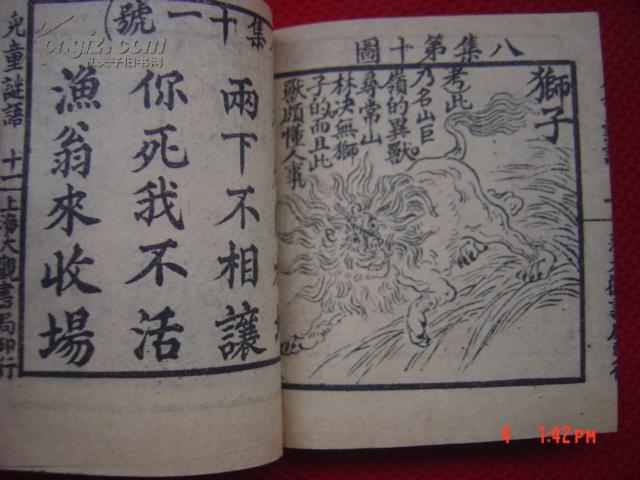 八集第十圖
獅子
考此
乃名山巨
嶺的異獸
尋常山
林決無獅
子的而且此
獸頗懂人事
集十一號)
兩下不相讓
你死我不活
漁翁來收場
兒童謎語 十一 上海大觀書局印行
孔夫子旧书网
kongfz.com
4 1:42PM